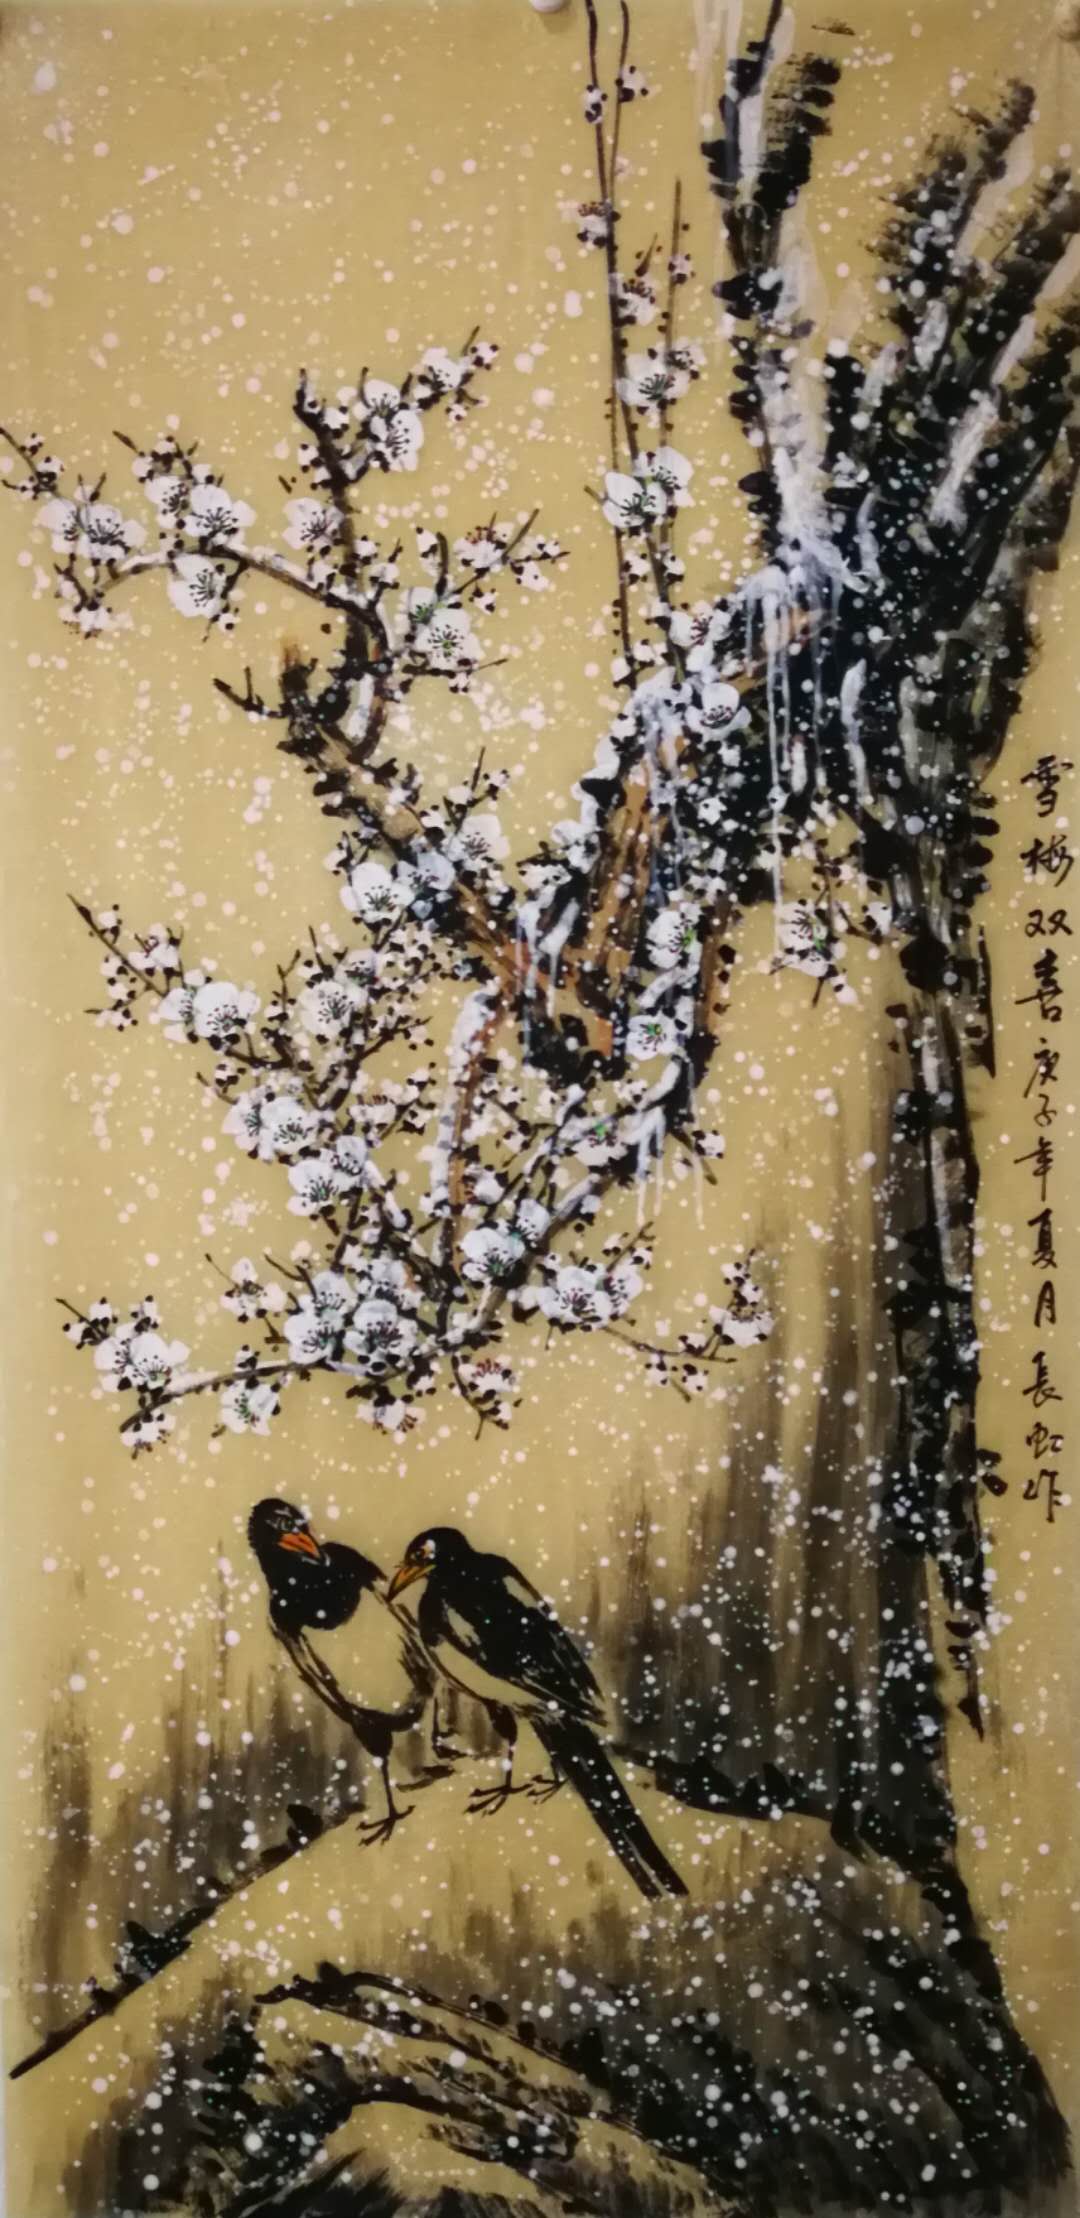 雪梅双喜庚子年夏月長虹作